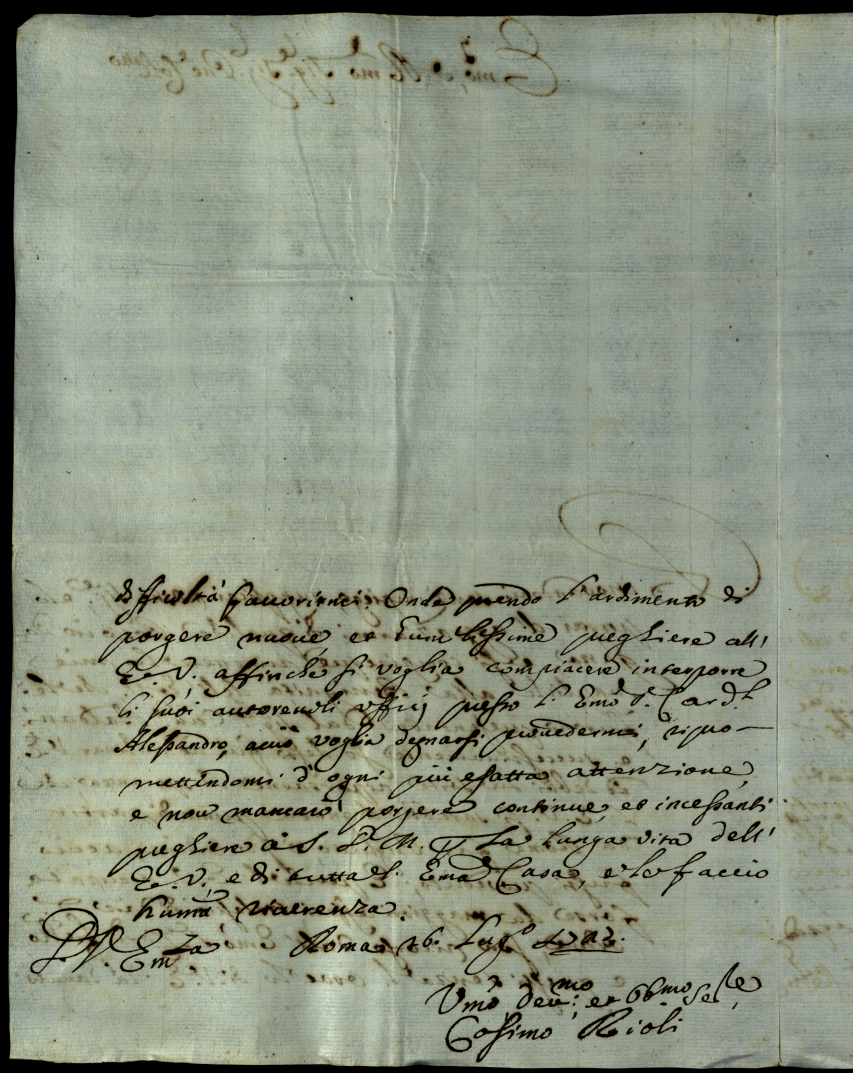 difficoltà favorirmi. Onde prendo l'ardimento di
porgere nuove et humilissime preghiere all'
E. V. affinchè si voglia compiacere interporre
li suoi autorevoli ufficij presso l'Emo S. Card.l
Alessandro, acciò voglia degnarsi provedermi, ripro-
mettendomi d'ogni più esatta attenzione,
e non mancarò porgere continue, et incessanti
preghiere à S. D. M. p la lunga vita dell'
E. V. e di tutta l'Ema Casa, e le faccio
humma riverenza.
D. V. Emza Roma 26. Lugo
Umo devmo: et obbmo Serre
Cosimo Rioli